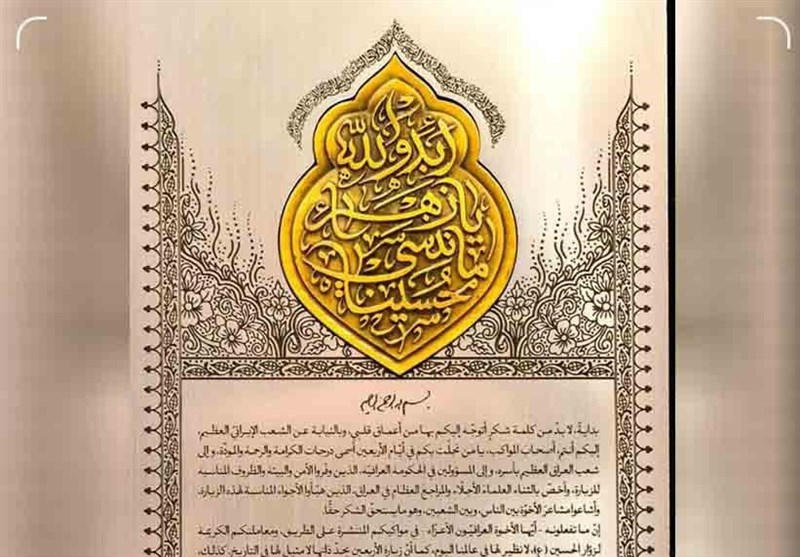 أبد والله
يا زهراء
ما ننسى
حسيناه
بسم الله الرحمن الرحيم
بداية، لا بدّ من كلمة شكرٍ أتوجّه إليكم بها من أعماق قلبي، وبالنيابة عن الشعب الإيراني العظيم،
إليكم أنتم، أصحاب المواكب، يا من تجلّت بكم في أيّام الأربعين أسمى درجات الكرامة والرحمة والمودّة، وإلى
شعب العراق العظيم بأسره، وإلى المسؤولين في الحكومة العراقيّة، الذين وفّروا الأمن والبيئة والظروف المناسبة
للزيارة، وأخصّ بالثناء العلماءَ الأجلّاء والمراجع العظام في العراق، الذين هيّأوا الأجواء المناسبة لهذه الزيارة،
وأشاعوا مشاعرَ الأخوّة بين الناس، وبين الشعبين، وهو ما يستحق الشكر حقًّا.
إنّ ما تفعلونه - أيّها الأخوة العراقيّون الأعزّاء - في مواكبكم المنتشرة على الطريق، ومعاملتكم الكريمة
لزوّار الحسين (ع)، لا نظير لها في عالمنا اليوم، كما أنّ زيارة الأربعين بحدّ ذاتها لا مثيل لها في التاريخ. كذلك،